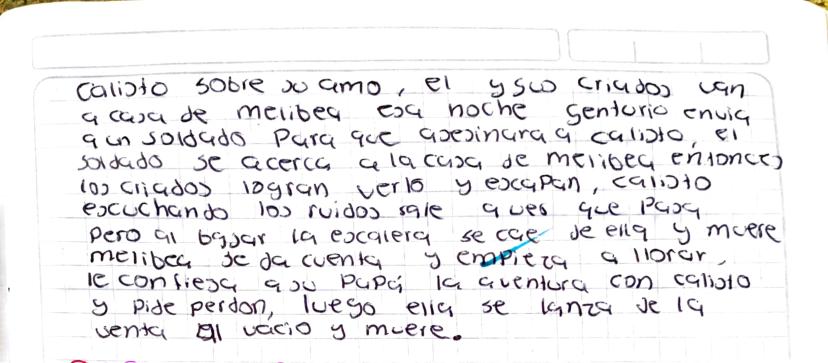 calisto sobre su amo, el y sus criados van
a casa de melibea esa noche senturio envia
a un soldado para que asesinara a calisto, el
soldado se acerca a la casa de melibea entonces
los criados logran verlo y escapan, calisto
escuchando los ruidos sale a ves que pasa
pero al bajar la escalera se cae de ella y muere
melibea se da cuenta y empieza a llorar,
le confiesa a su papá la aventura con calisto
y pide perdon, luego ella se lanza de la
venta al vacio y muere.